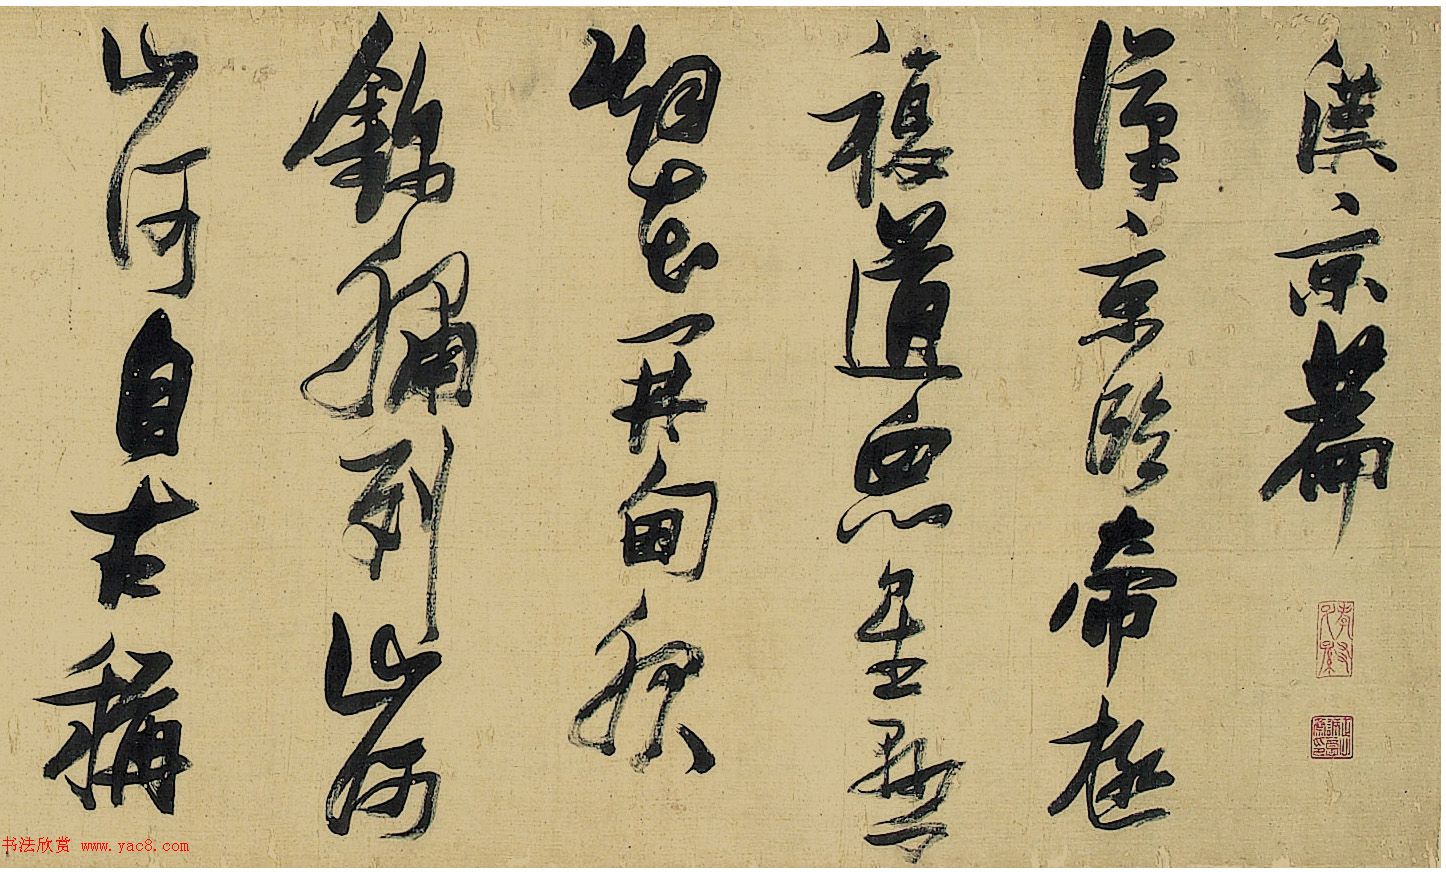 漢京篇
漢京臨帝極
複道衆星懸
烟花開甸服
錦繡列山河
山河自古稱
书法欣赏 www.yac8.com